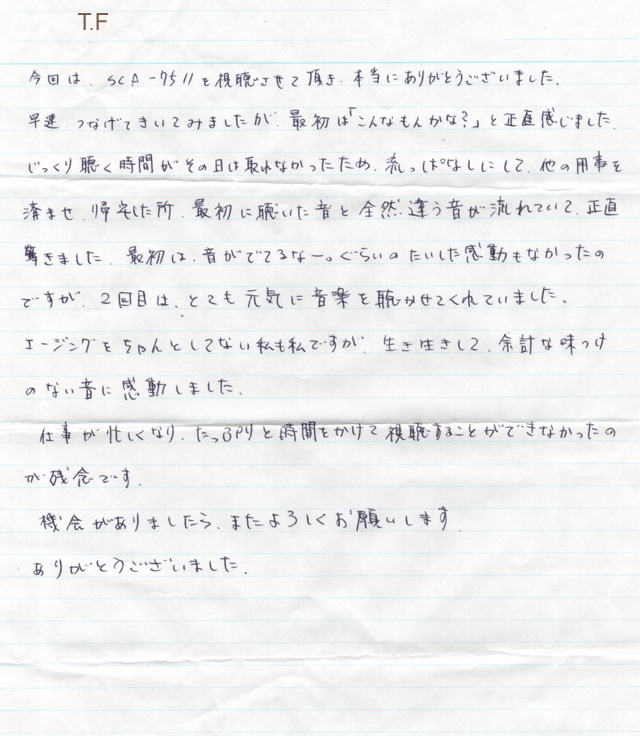 T.F
今回は、SCA-7511を視聴させて頂き、本当にありがとうございました。
早速、つなげてきいてみましたが、最初は「こんなもんかな?」と正直感じました。
じっくり聴く時間がその日は取れなかったため、流っぱなしにして、他の用事を
済ませ、帰宅した所、最初に聴いた音と全然違う音が流れていて、正直
驚きました。最初は、音がでてるなー。ぐらいのたいした感動もなかったの
ですが、2回目は、とても元気に音楽を聴かせてくれていました。
エージングをちゃんとしてない私も私ですが、生き生きして、余計な味つけ
のない音に感動しました。
仕事が忙しくなり、たっぷりと時間をかけて視聴することができなかったの
が残念です。
機会がありましたら、またよろしくお願いします。
ありがとうございました。